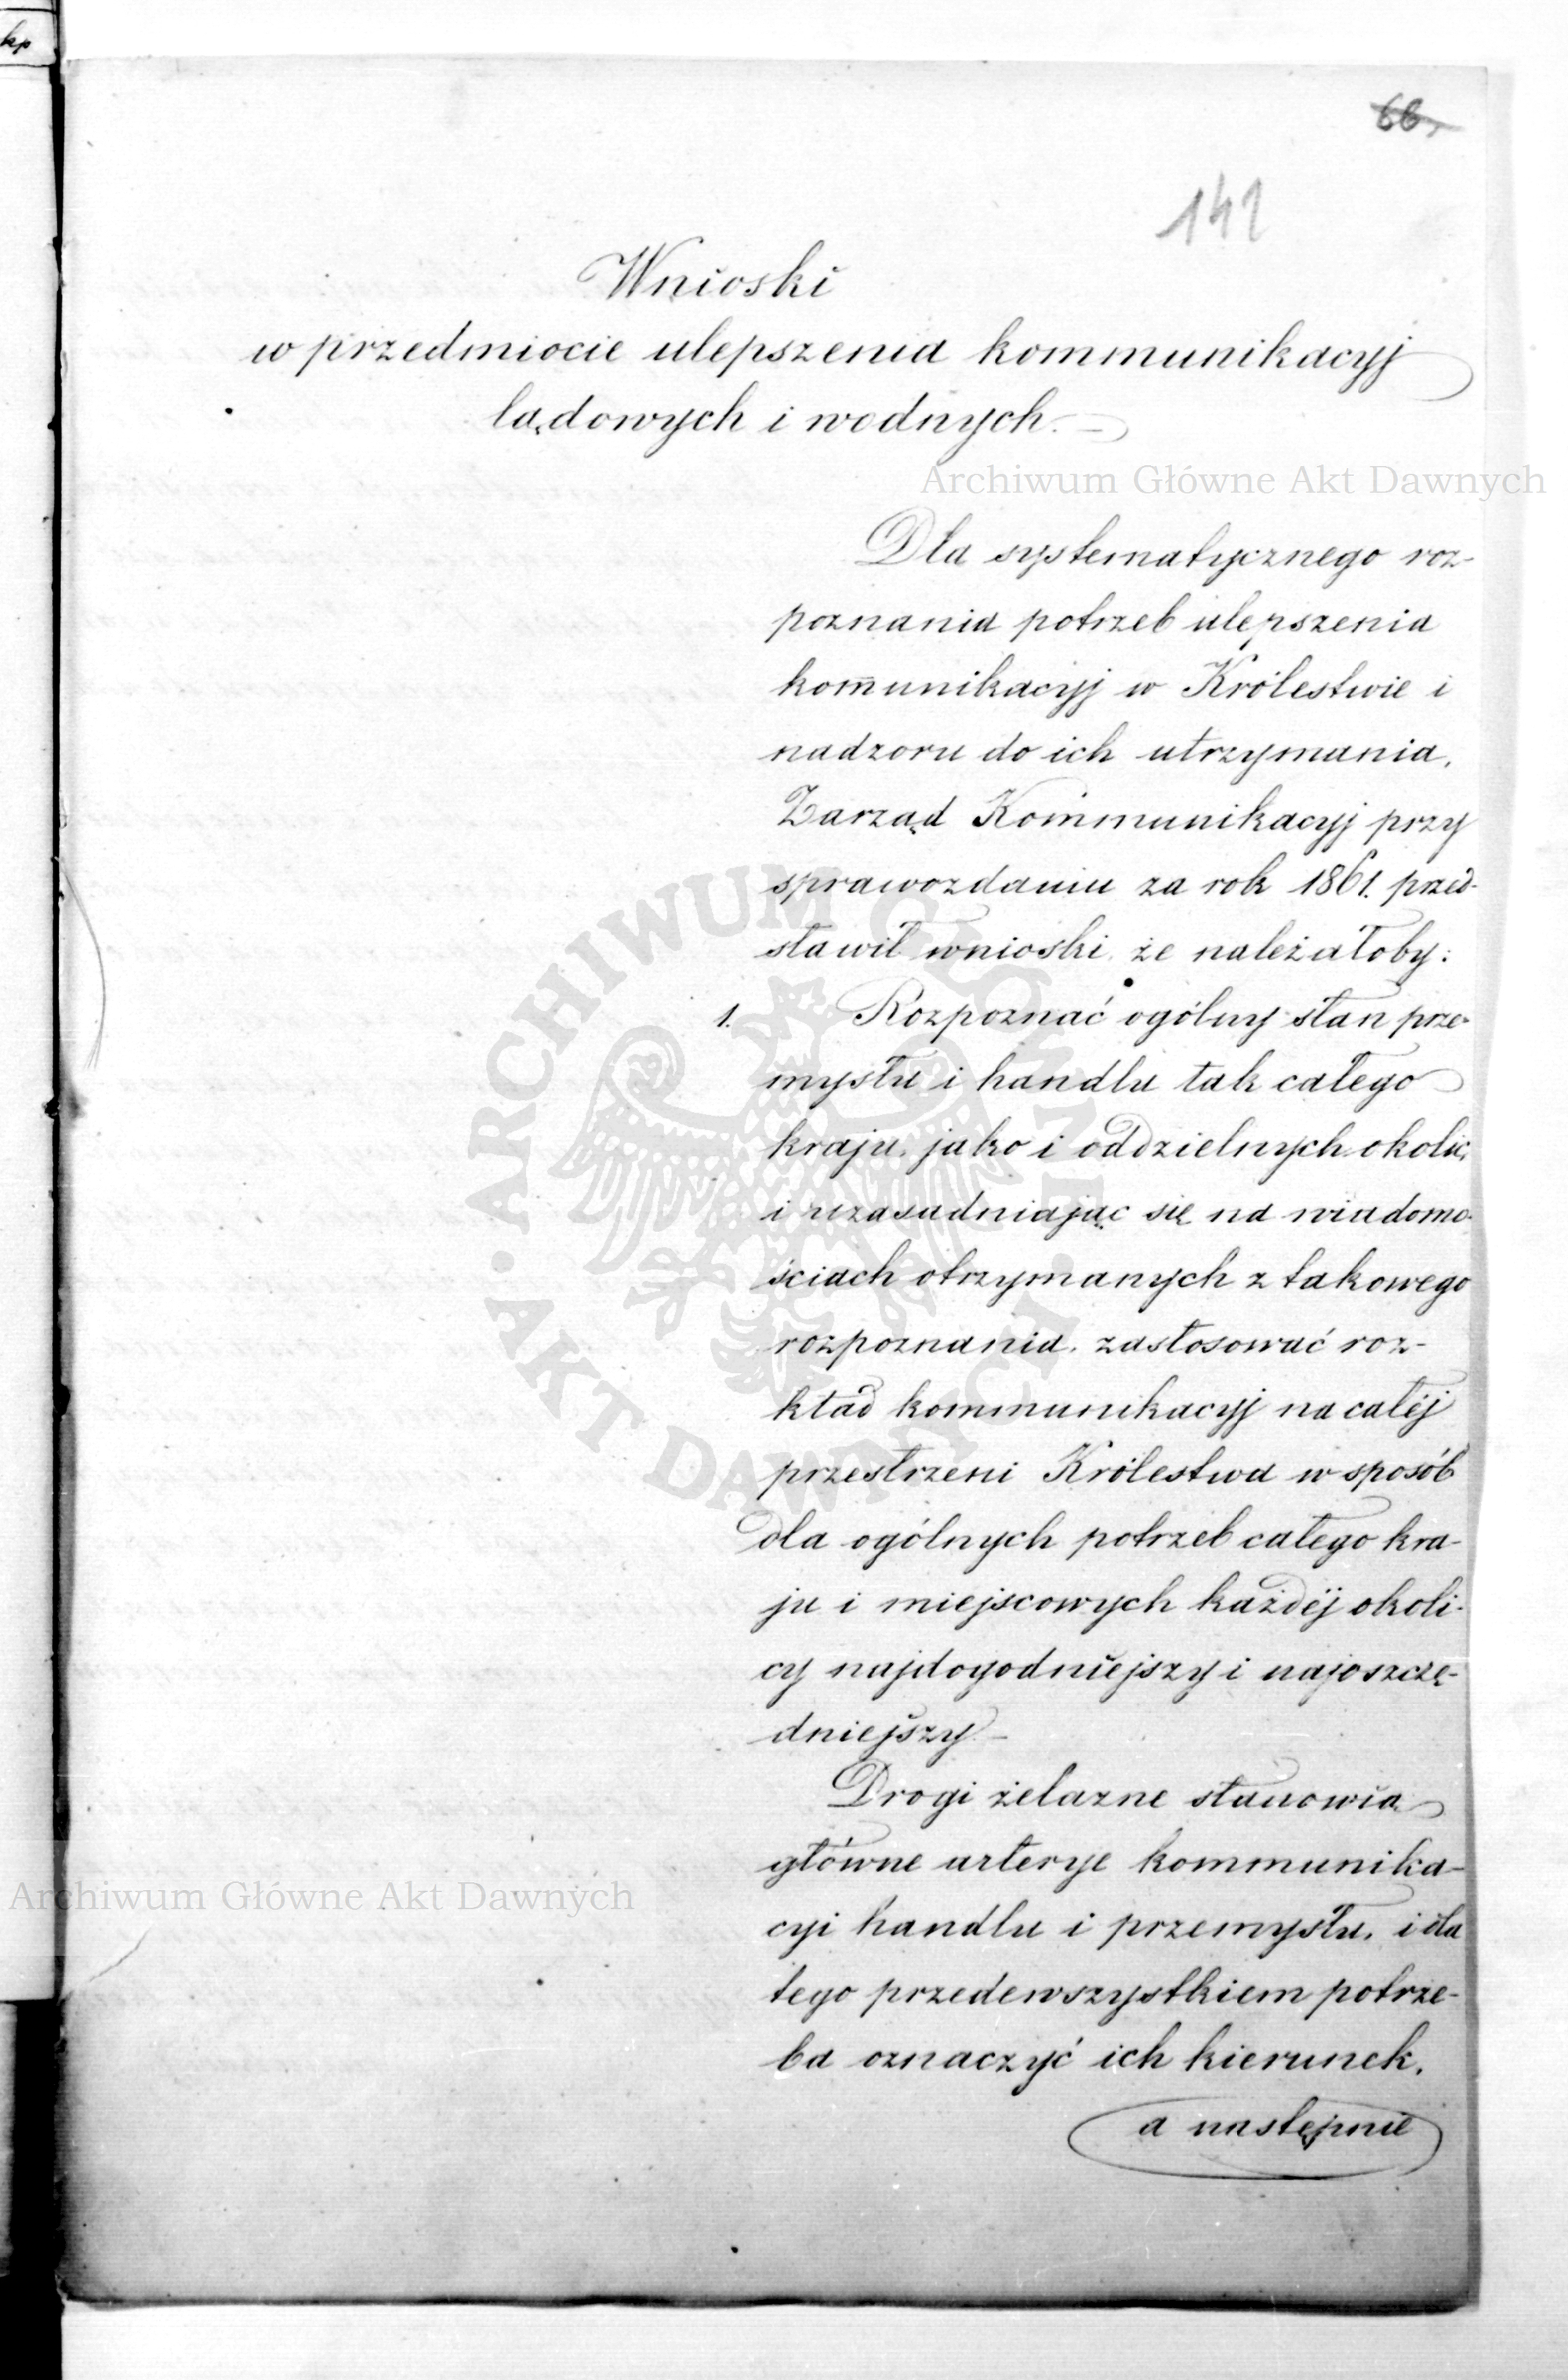 kp
66.
141
Wnioski
w przedmiocie ulepszenia kommunikacyj
lądowych i wodnych.
Archiwum Główne Akt Dawnych
Dla systematycznego roz-
poznania potrzeb ulepszenia
kom̄unikacyj w Królestwie i
nadzoru do ich utrzymania,
Zarząd Kommunikacyj przy
sprawozdaniu za rok 1861. przed-
stawił wnioski, że należałoby:
1. Rozpoznać ogólny stan prze-
mysłu i handlu tak całego
kraju, jako i oddzielnych okolic,
i uzasadniając się na wiadomo-
ściach otrzymanych z takowego
rozpoznania, zastosować roz-
kład kommunikacyj na całéj
przestrzeni Królestwa w sposób
dla ogólnych potrzeb całego kra-
ju i miejscowych każdéj okoli-
cy najdogodniejszy i najoszczę-
dniejszy.—
Drogi żelazne stanowią
główne arterye kommunika-
cyi handlu i przemysłu, i dla
tego przedewszystkiem potrze-
ba oznaczyć ich kierunek,
a następnie
Archiwum Główne Akt Dawnych
ARCHIWUM GŁÓWNE · AKT DAWNYCH ·